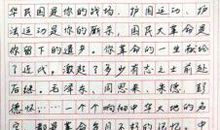 华民国是你的战场，护国运动、护
法运动是你的厮杀，国民大革命是
你留下的遗产。你革命的一生献给
了近代，激起了多少有志之士前赴
后继，毛泽东、周恩来、朱德、彭
德怀……一个个响彻中华大地的名
字，都是革命岁月不朽的记忆。中